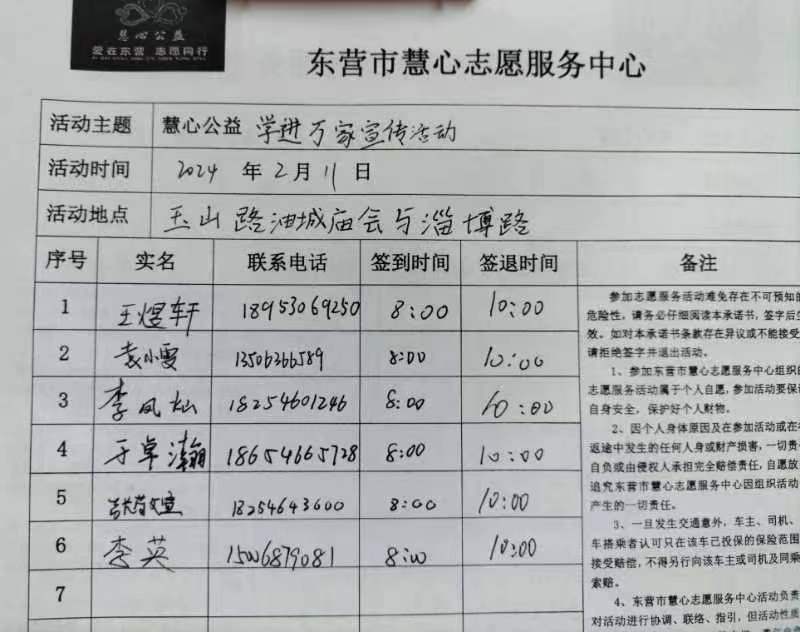 慧心公益
爱在东营 志愿同行
东营市慧心志愿服务中心
活动主题 慧心公益 学进万家宣传活动
活动时间 2024 年 2 月 11 日
活动地点 玉山路油城庙会与淄博路
序号 实名 联系电话 签到时间 签退时间 备注
1 王煜轩 18953069250 8:00 10:00
2 袁小雯 13506366589 8:00 10:00
3 李凤灿 18254601246 8:00 10:00
4 于卓瀚 18654665728 8:00 10:00
5 18254643600 8:00 10:00
6 李英 15006879081 8:00 10:00
7
参加志愿服务活动难免存在不可预知的
危险性，请务必仔细阅读本承诺书，签字后生
效。如对本承诺书条款存在异议或不能接受
请拒绝签字并退出活动。
1、参加东营市慧心志愿服务中心组织的
志愿服务活动属于个人自愿，参加活动要保证
自身安全，保护好个人财物。
2、因个人身体原因及在参加活动或在往
返途中发生的任何人身或财产损害，一切责
自负或由侵权人承担完全赔偿责任，自愿放
追究东营市慧心志愿服务中心因组织活动
产生的一切责任。
3、一旦发生交通意外，车主、司机、
车搭乘者认可只在该车已投保的保险范围
接受赔偿，不得另行向该车主或司机及同乘
索赔。
4、东营市慧心志愿服务中心活动负责
对活动进行协调、联络、指引，但活动性质